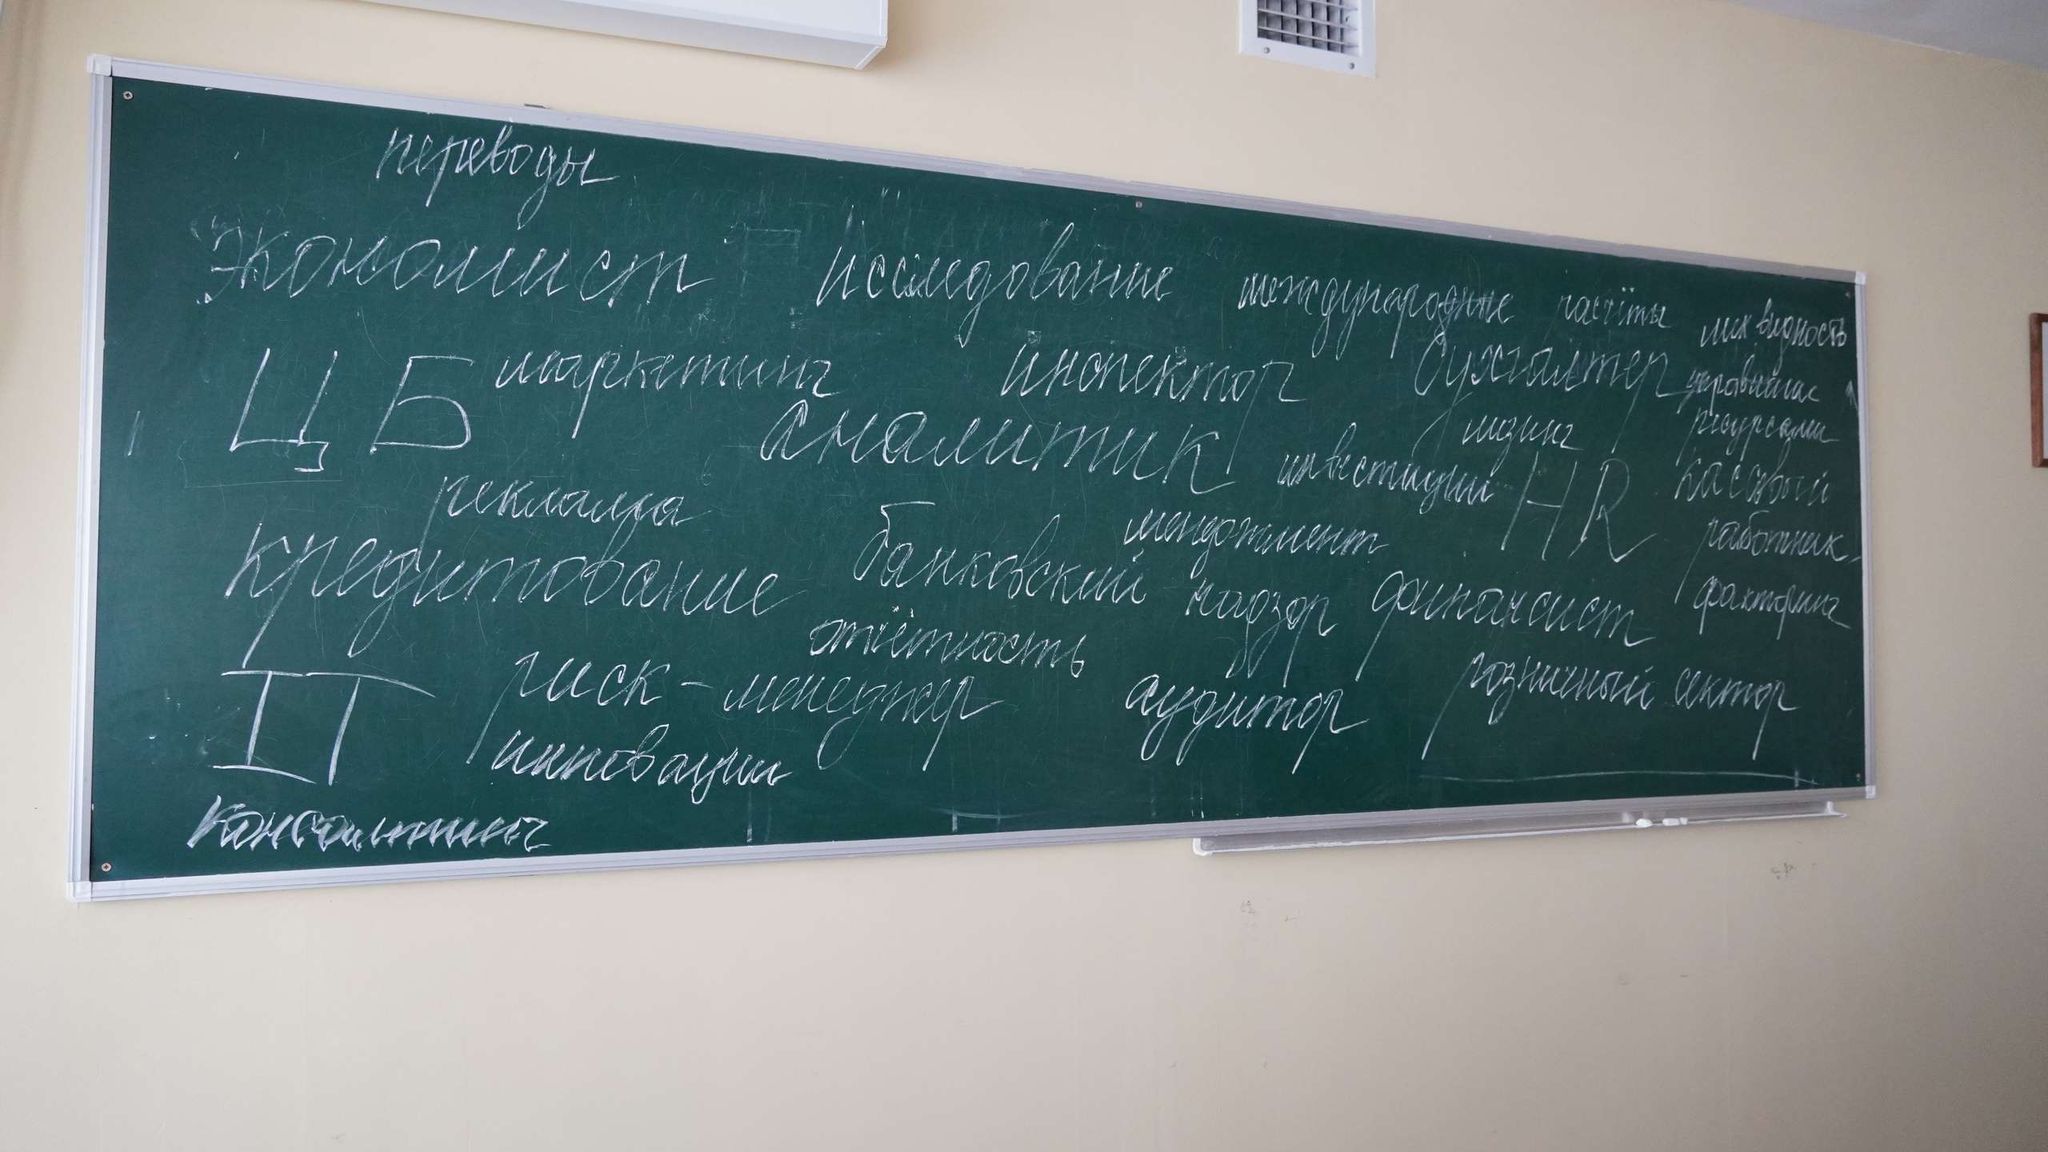 переводы
экономист исследование международные расчёты ликвидность
ЦБ маркетинг инспектор бухгалтер управление
аналитик инвестиции лизинг ресурсами
реклама менеджмент HR кассовый
кредитование банковский надзор финансист работник
отчётность факторинг
IT риск-менеджер аудитор розничный сектор
инновации
консалтинг